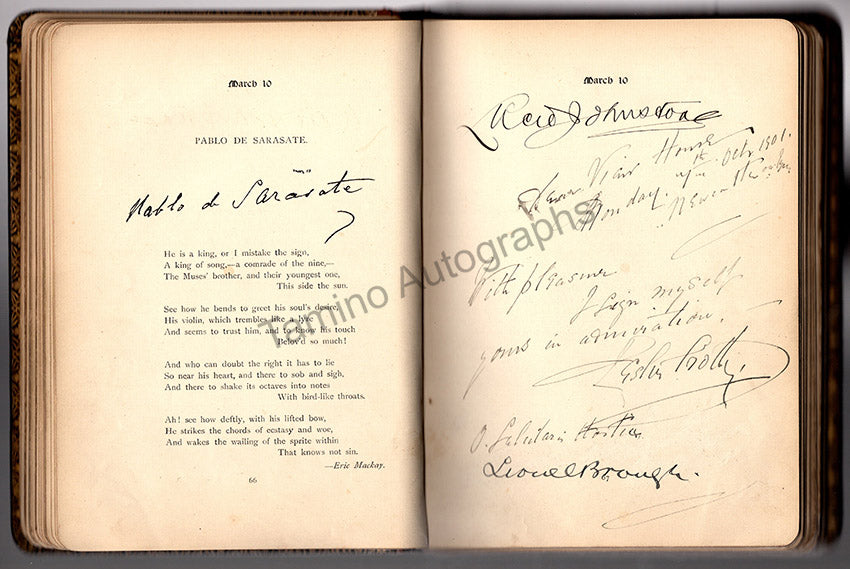 March 10
PABLO DE SARASATE.
Pablo de Sarasate
He is a king, or I mistake the sign,
A king of song,—a comrade of the nine,—
The Muses' brother, and their youngest one,
This side the sun.
See how he bends to greet his soul's desire,
His violin, which trembles like a lyre
And seems to trust him, and to know his touch
Belov'd so much!
And who can doubt the right it has to lie
So near his heart, and there to sob and sigh,
And there to shake its octaves into notes
With bird-like throats.
Ah! see how deftly, with his lifted bow,
He strikes the chords of ecstasy and woe,
And wakes the wailing of the sprite within
That knows not sin.
—Eric Mackay.
66
March 10
Johnstone
View House
Monday. Oct 1901.
With pleasure
I sign myself
yours in admiration.
Leslie Crotty,
O. Salutaris Hostia
Lionel Brough.
Tamino Autographs